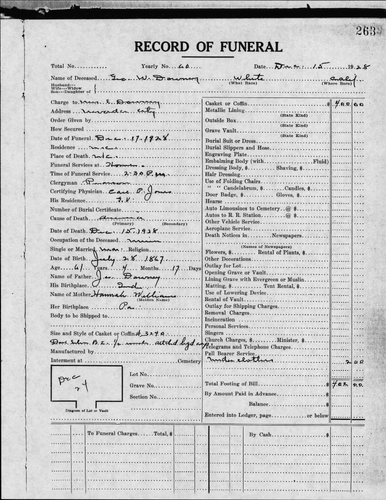 263
RECORD OF FUNERAL
Total No. Yearly No. 60 Date Dec. 15 1928
Name of Deceased Geo. W. Downey White Calif
(What Race) (Where Born)
Husband—
Wife—Widow
Son—Daughter of
Charge to Mrs. Downey
Address Nevada City
Order Given by
How Secured
Date of Funeral Dec-17-1928
Residence N.C.
Place of Death N.C.
Funeral Services at Home
Time of Funeral Service 2:30 P.M.
Clergyman
Certifying Physician Carl P. Jones
His Residence G.V.
Number of Burial Certificate
Cause of Death
(Secondary)
Date of Death Dec. 15 1928
Occupation of the Deceased Miner
Single or Married Mar. Religion
Date of Birth July 28. 1867
Age 61 Years 4 Months 17 Days
Name of Father Downey
His Birthplace Ind
Name of Mother Hannah Williams
(Maiden Name)
Her Birthplace Pa
Body to be Shipped to
Size and Style of Casket or Coffin
Manufactured by
Interment at Cemetery
Lot No.
Grave No.
Section No.
Dec
24
Diagram of Lot or Vault
Casket or Coffin $ 400 00
Metallic Lining
(State Kind)
Outside Box
(State Kind)
Grave Vault
(State Kind)
Burial Suit or Dress
Burial Slippers and Hose
Engraving Plate
Embalming Body (with Fluid)
Dressing Body, $ Shaving, $
Hair Dressing
Use of Folding Chairs
" " Candelabrum, $ Candles, $
Door Badge, $ Gloves, $
Hearse
Auto Limousines to Cemetery @ $
Autos to R. R. Station, @ $
Other Vehicle Service
Aeroplane Service
Death Notices in Newspapers
(Names of Newspapers)
Flowers, $ Rental of Plants, $
Other Decorations
Outlay for Lot
Opening Grave or Vault
Lining Grave with Evergreen or Muslin
Matting, $ Tent Rental, $
Use of Lowering Device
Rental of Vault
Outlay for Shipping Charges
Removal Charges
Incineration
Personal Services
Singers
Church Charges, $ Minister, $
Telegrams and Telephone Charges
Pall Bearer Service
Underclothes 2 00
Total Footing of Bill $ 402 00
By Amount Paid in Advance $
Balance $
Entered into Ledger, page or below
To Funeral Charges Total, $
By Cash $